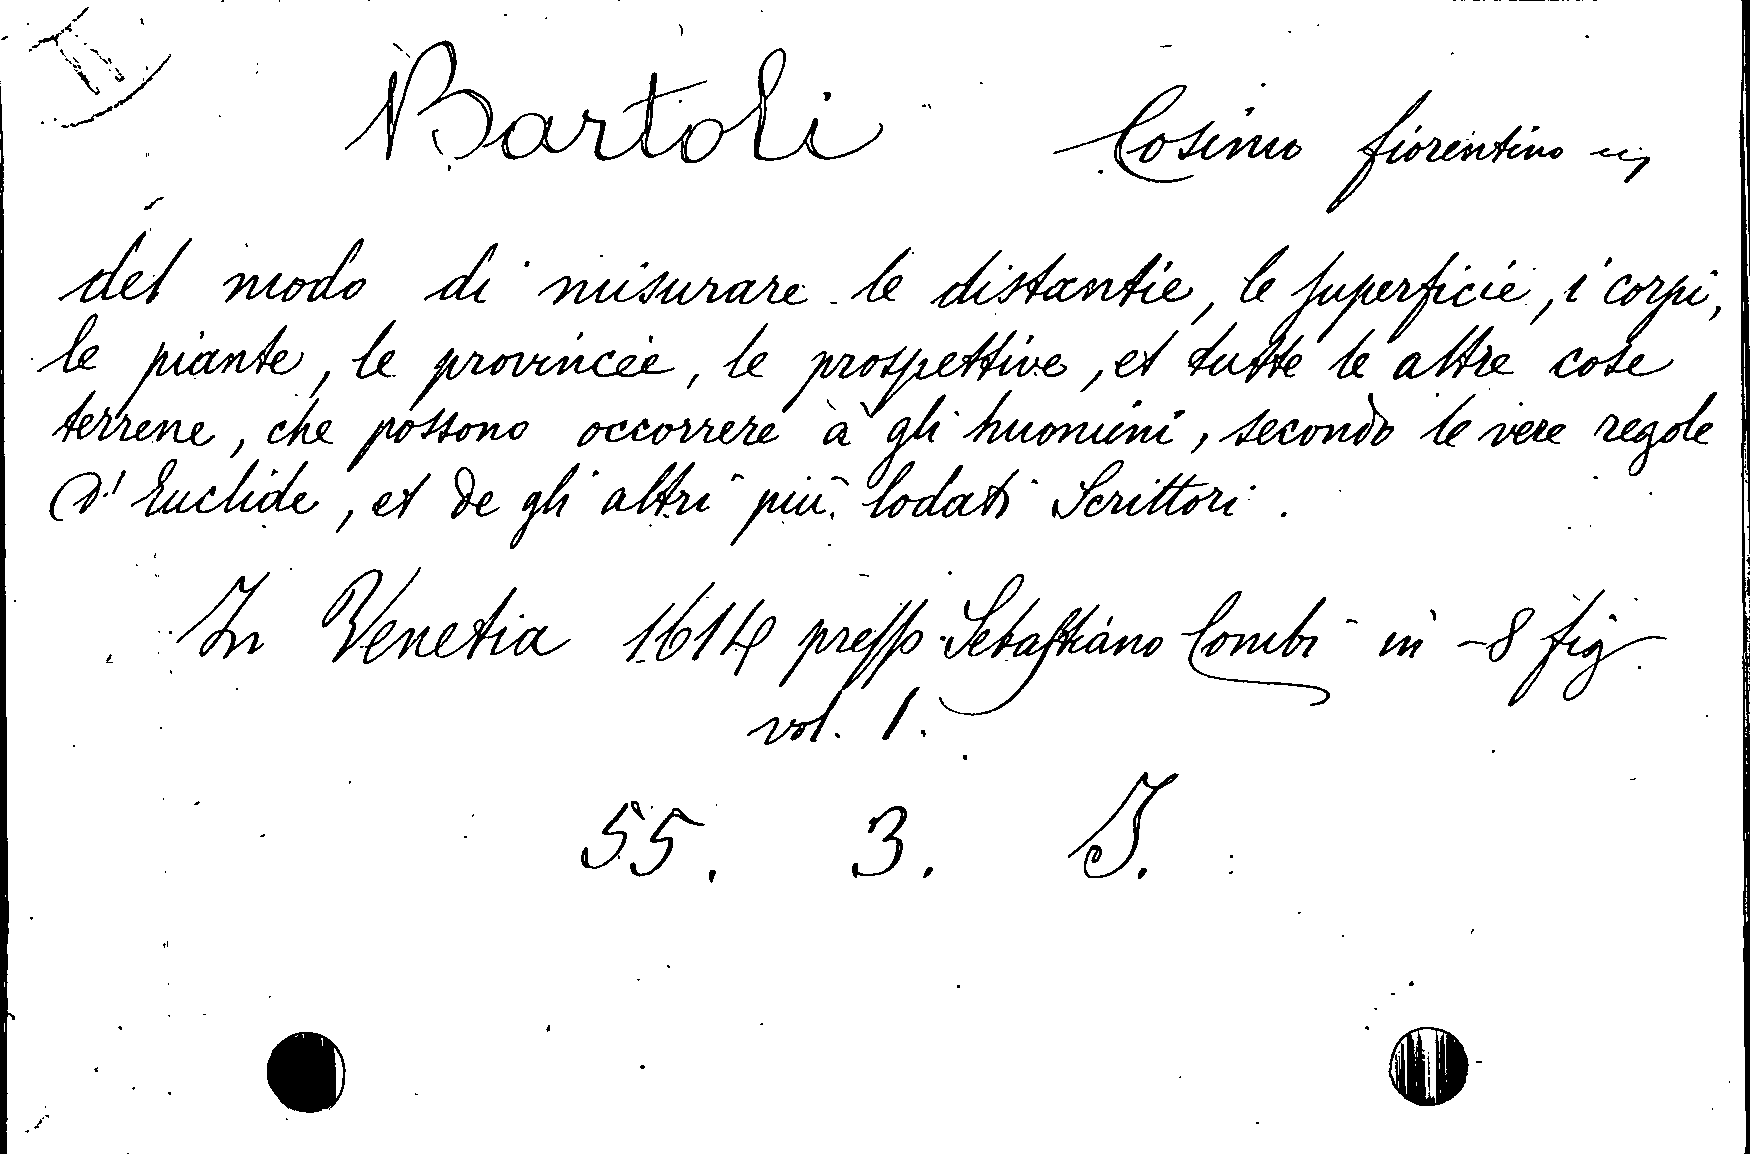 Bartoli Cosimo fiorentino
del modo di misurare le distantie, le superficie, i corpi,
le piante, le provincie, le prospettive, et tutte le altre cose
terrene, che possono occorrere à gli huomini, secondo le vere regole
d'Euclide, et de gli altri più lodati Scrittori.
In Venetia 1614 presso Sebastiano Combi in -8 fig
vol. 1.
55. 3. I.